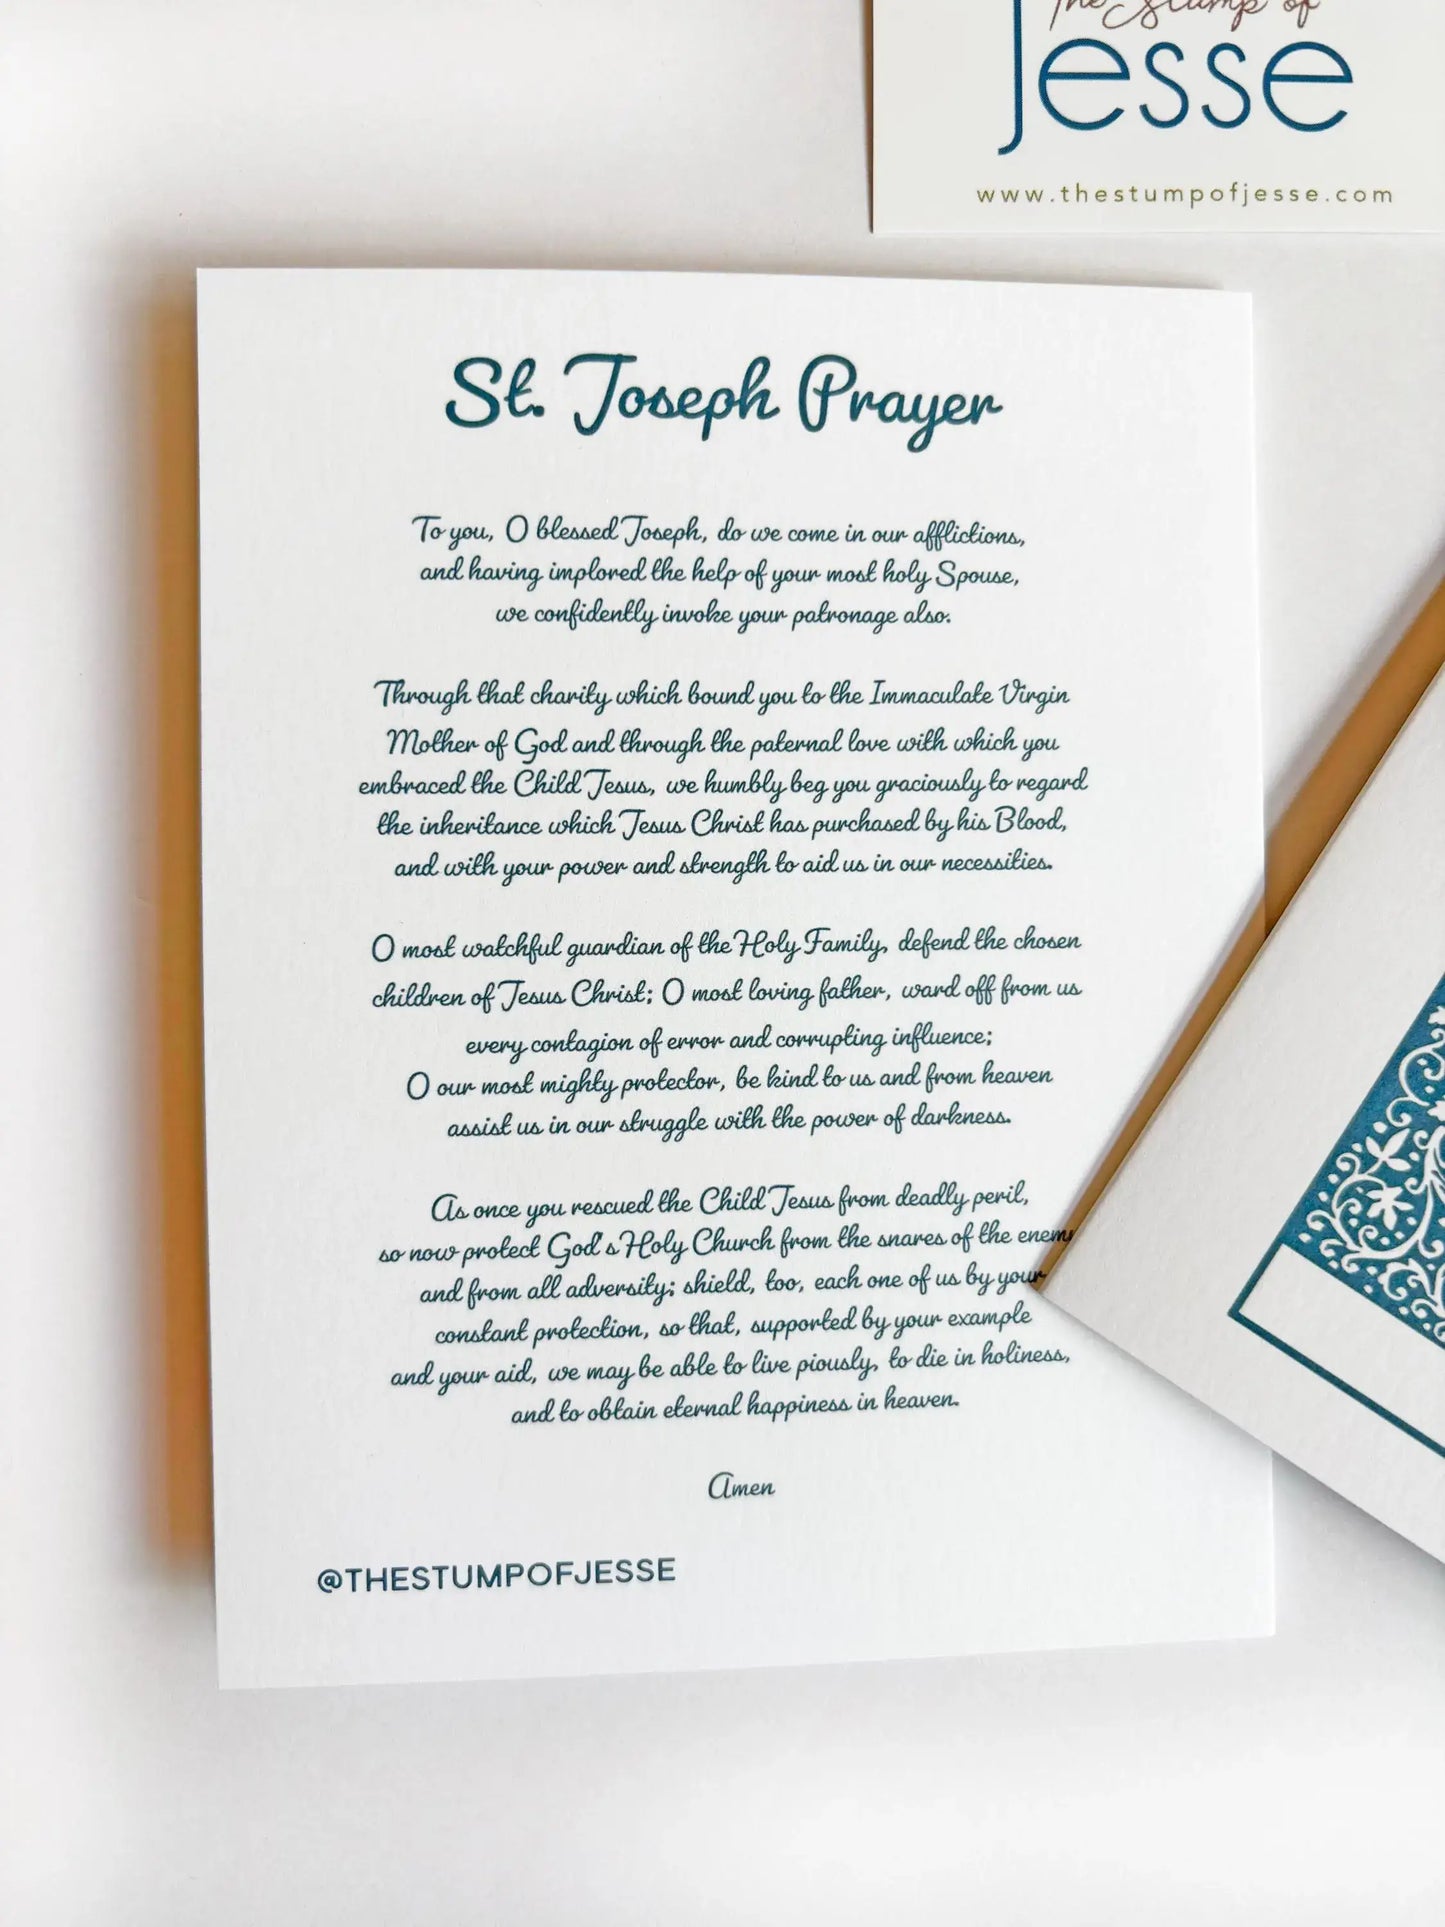 The Stump of
Jesse
www.thestumpofjesse.com
St. Joseph Prayer
To you, O blessed Joseph, do we come in our afflictions,
and having implored the help of your most holy Spouse,
we confidently invoke your patronage also.
Through that charity which bound you to the Immaculate Virgin
Mother of God and through the paternal love with which you
embraced the Child Jesus, we humbly beg you graciously to regard
the inheritance which Jesus Christ has purchased by his Blood,
and with your power and strength to aid us in our necessities.
O most watchful guardian of the Holy Family, defend the chosen
children of Jesus Christ; O most loving father, ward off from us
every contagion of error and corrupting influence;
O our most mighty protector, be kind to us and from heaven
assist us in our struggle with the power of darkness.
As once you rescued the Child Jesus from deadly peril,
so now protect God's Holy Church from the snares of the enemy
and from all adversity; shield, too, each one of us by your
constant protection, so that, supported by your example
and your aid, we may be able to live piously, to die in holiness,
and to obtain eternal happiness in heaven.
Amen
@THESTUMPOFJESSE